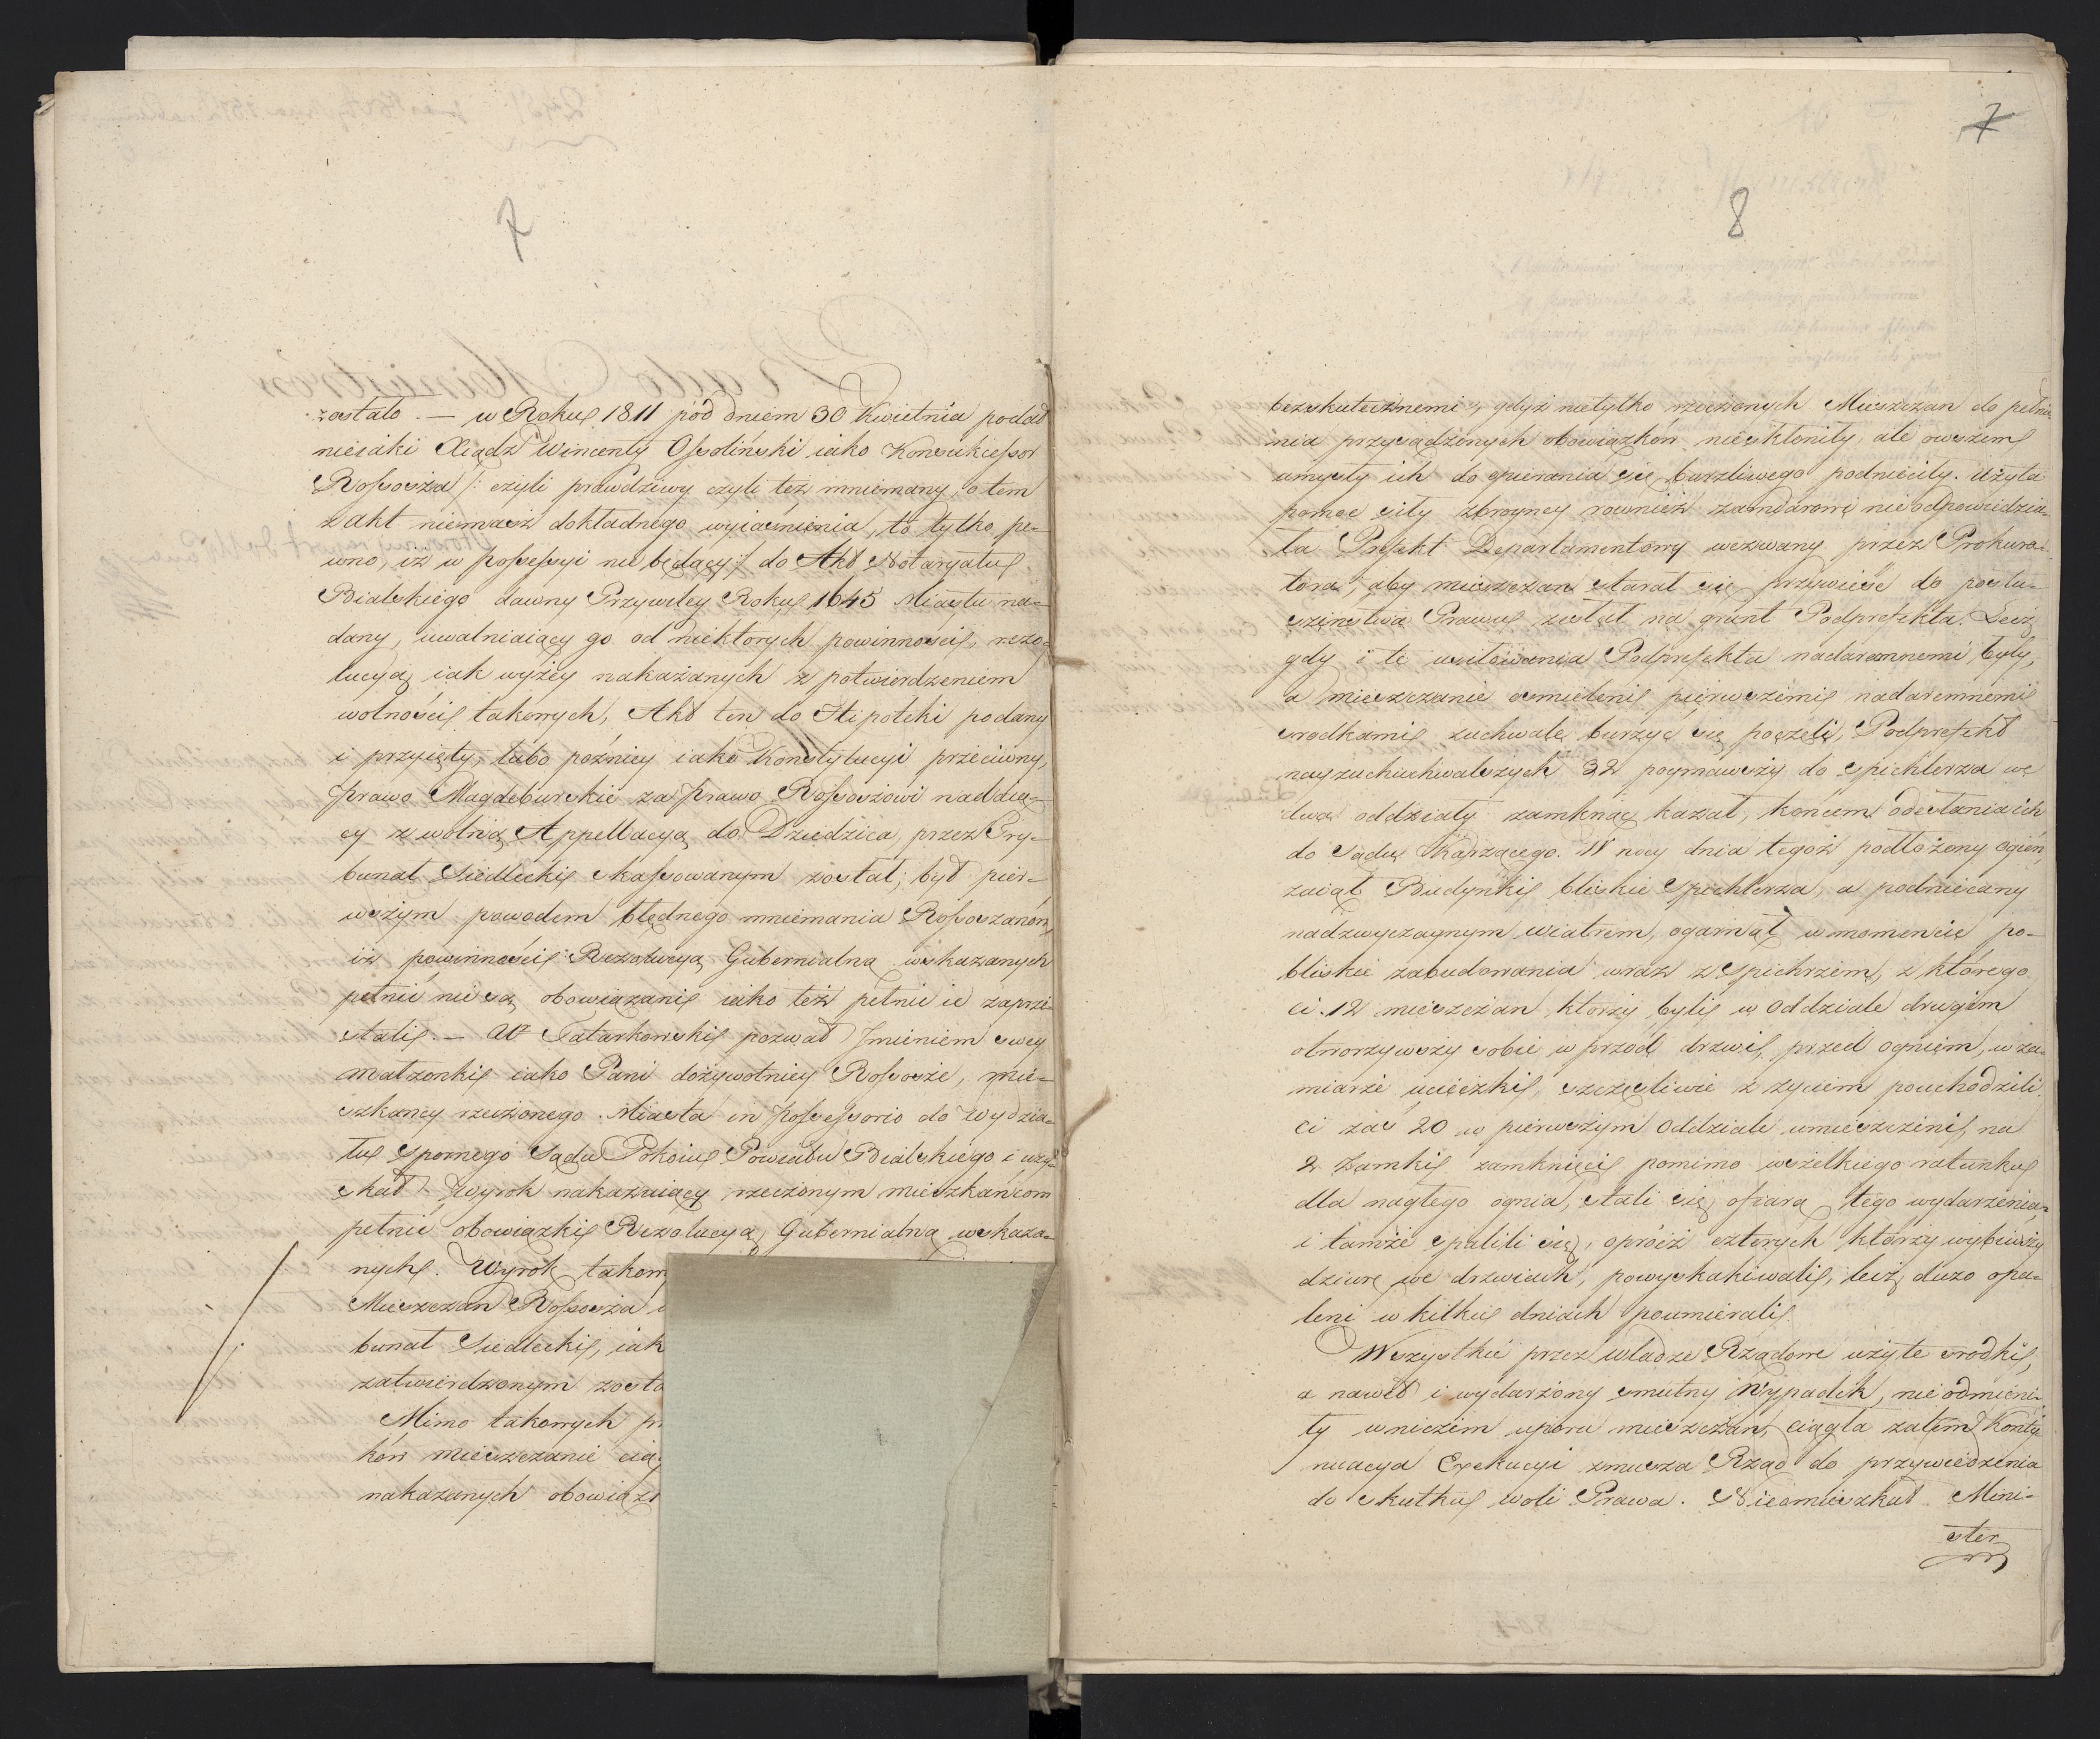 7
zostało. — w Roku 1811 pod dniem 30 Kwietnia podał
nieiaki Xiądz Wincenty Ossoliński iako Konsukcessor
Rossosza /: czyli prawdziwy czyli też mniemany, o tem
z akt niemasz dokładnego wyiaśnienia, to tylko pe-
wno, iż w possessyi nie będący :/ do Akt Notaryatu
Bialskiego dawny Przywiley Roku 1645 Miastu na-
dany, uwalniaiący go od niektorych powinności, rezo-
lucyą iak wyżey nakazanych z potwierdzeniem
wolności takowych, Akt ten do Hipoteki podany
i przyięty, lubo poźniey iako Konstytucyi przeciwny,
Prawo Magdeburskie za prawo Rossoszowi nadaią-
cy z wolną Appellacyą do Dziedzica, przez Try-
bunał Siedlecki skassowanym został; był pier-
wszym powodem błędnego mniemania Rossoszanow,
iż powinności Rezolucyą Gubernialną wskazanych
pełnić nie są obowiązani iako też pełnić ie zaprze-
stali. — Ur Tatarkowski pozwał Jmieniem swey
małżonki iako Pani dożywotniey Rossosze, mie-
szkańcy rzeczonego Miasta in Possessorio do Wydzia-
łu Spornego Sądu Pokoiu Powiatu Bialskiego i uzy-
skał Wyrok nakazuiący rzeczonym mieszkańcom
pełnić obowiązki Rezolucyą Gubernialną wskaza-
nych. Wyrok takow
Mieszczan Rossosza
bunał Siedlecki, iak
zatwierdzonym zosta
Mimo takowych p
ków mieszczanie cią
nakazanych obowiąz
7
8
bezskutecznemi, gdyż nietylko rzeczonych Mieszczan do pełnie-
nia przysądzonych obowiązków nieskłoniły, ale owszem
umysły ich do opierania się burzliwego podnieciły. Użyta
pomoc siły zbroyney rownież zamiarowi nie odpowiedzia-
ła Prefekt Departamentowy wezwany przez Prokura-
tora, aby mieszczan starał się przywieść do posłu-
szeństwa Prawu zesłał na grunt Podprefekta. Lecz
gdy i te usiłowania Podprefekta nadaremnemi były,
a mieszczanie ośmieleni pierwszemi nadaremnemi
srodkami zuchwale burzyć się poczęli, Podprefekt
nayzuchuchwalszych 32 poymawszy do spichlerza we
dwa oddziały zamknąć kazał, końcem odesłania ich
do Sądu Karzącego. W nocy dnia tegoż podłożony ogień,
zaiął Budynki bliskie Spichlerza, a podniecany
nadzwyczaynym wiatrem, ogarnął w momencie po-
bliskie zabudowania wraz z Spichrzem, z którego
ci 12 mieszczan, ktorzy byli w oddziale drugim
otworzywszy sobie wprzód drzwi, przed ogniem, w za-
miarze ucieczki, szczęśliwie z życiem pouchodzili,
ci zaś 20 w pierwszym Oddziale umieszczeni, na
2 Zamki zamknięci pomimo wszelkiego ratunku
dla nagłego ognia, stali się ofiarą tego wydarzenia,
i tamże spalili się, oprócz czterych którzy wybiwszy
dziurę we drzwiach, powyskakiwali, lecz dużo opa-
leni w kilku dniach poumierali.
Wszystkie przez władze Rządowe użyte srodki,
a nawet i wydarzony smutny Wypadek, nie odmieni-
ły w niczem uporu mieszczan, ciągła zatem Konty-
nuacya Exekucyi zmusza Rząd do przywiedzenia
do skutku woli Prawa. Nieomieszkał Mini-
ster